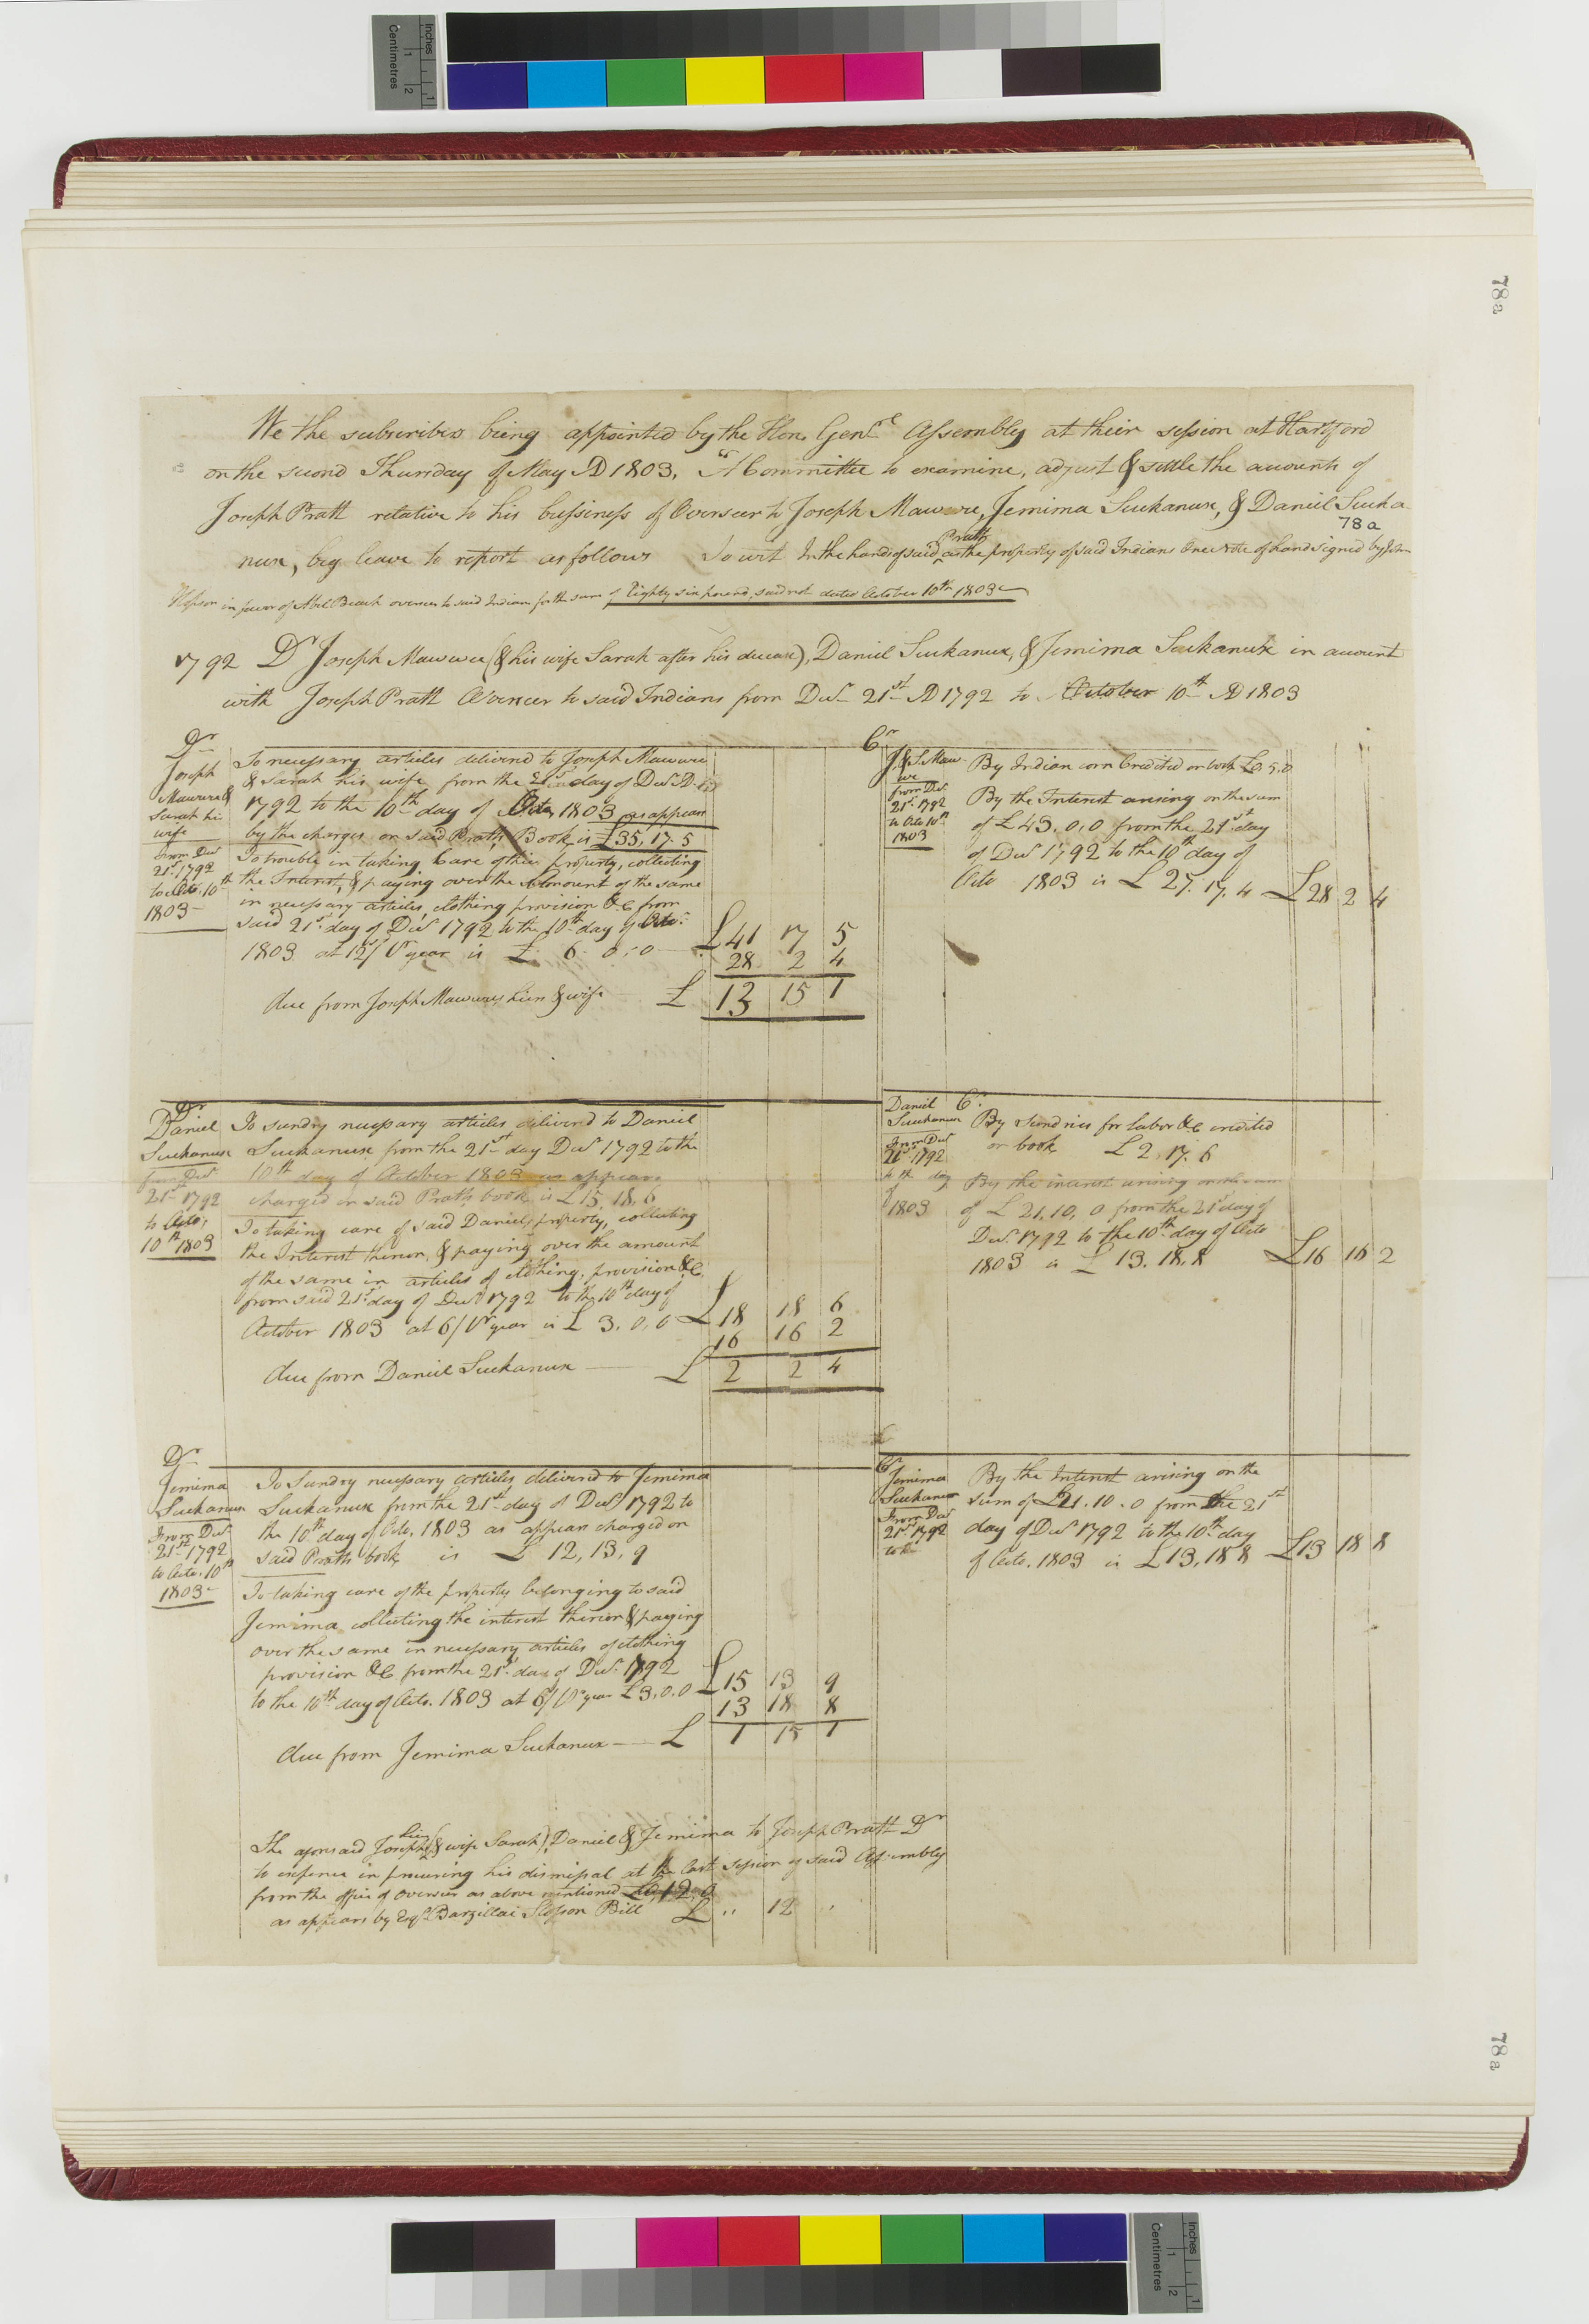 Inches
Centimetres
1
2
1
78a
We the subscribers being appointed by the Hon. Gen.ll Assembly at their session at Hartford
on the second Thursday of May AD 1803, as A Committee to examine, adjust & settle the accounts of
Joseph Pratt relative to his bussiness of Overseer to Joseph Mawwee, Jemima Suckanux, & Daniel Sucka
78a
nux, beg leave to report as follows To wit In the hands of said Pratt as the property of said Indians One Note of hand signed by John
Hopson in favor of Abel Beach overseer to said Indians for the sum of Eighty six pound, said note dated October 10th 1803
1792 Dr Joseph Mawwee (& his wife Sarah after his decease), Daniel Suckanux, & Jemima Suckanux in account
with Joseph Pratt Overseer to said Indians from Decr 21st AD 1792 to October 10th AD 1803
Dr
Joseph
Mawwee &
Sarah his
wife
from Decr
21st 1792
to Octo. 10th
1803
To necessary articles delivered to Joseph Mawwee
& Sarah his wife from the 21st day of Decr AD
1792 to the 10th day of Octo. 1803 as appears
by the charges on said Pratts Book is £35,,17,,5
To trouble in taking care of their property, collecting
the Interest, & paying over the Amount of the same
in necessary articles, clothing provision &C from
said 21st day of Decr 1792 to the 10th day of Octo.
1803 at 12/ Pr year is £ 6. 0,, 0 £41 17 5
28 2 4
due from Joseph Mawwees heirs & wife £ 13 15 1
Cr
J. & S. Maw-
we
from Decr
21st 1792
to Octo 10th
1803
By Indian corn Credited on book £0. 5. 0
By the Interest arising on the sum
of £43. 0,, 0 from the 21st day
of Decr 1792 to the 10th day of
Octo 1803 is £27. 17. 4 £28 2 4
Dr
Daniel
Suckanux
from Decr
21st 1792
to Octo,
10th 1803
To sundry necessary articles delivered to Daniel
Suckanux from the 21st day Decr 1792 to the
10th day of October 1803 as appears
charged on said Pratts book is £15, 18, 6
To taking care of said Daniels property, collecting
the Interest thereon, & paying over the amount
of the same in articles of clothing, provision &C,
from said 21st day of Decr 1792 to the 10th day of
October 1803 at 6/ Pr year is £ 3. 0,, 0 £18 18 6
16 16 2
due from Daniel Suckanux £ 2 2 4
Cr
Daniel
Suckanux
from Decr
21st 1792
to th day
of
1803
By Sundries for labor &C credited
on book £2. 17. 6
By the interest arising on the sum
of £ 21, 10, 0 from the 21st day of
Decr 1792 to the 10th day of Octo
1803 is £ 13. 18, 8 £16 16 2
Dr
Jemima
Suckanux
From Decr
21st 1792
to Octo. 10th
1803
To Sundry necessary articles delivered to Jemima
Suckanux from the 21st day of Decr 1792 to
the 10th day of Octo. 1803 as appears charged on
said Pratts book is £ 12, 13, 9
To taking care of the property belonging to said
Jemima collecting the interest thereon & paying
over the same in necessary articles of clothing
provision &C from the 21st day of Decr 1792
to the 10th day of Octo. 1803 at 6/ Pr year £3,, 0,, 0 £15 13 9
13 18 8
due from Jemima Suckanux £ 1 15 1
Cr
Jemima
Suckanux
From Decr
21st 1792
to the
By the Interest arising on the
sum of £21. 10. 0 from the 21st
day of Decr 1792 to the 10th day
of Octo. 1803 is £13, 18 8 £13 18 8
The aforesaid Joseph (heirs & wife Sarah), Daniel & Jemima to Joseph Pratt Dr
to expence in procuring his dismissal at the last session of said Assembly
from the office of Overseer as above mentioned £0, 12, 0
as appears by Esqr Barzillai Slosson Bill £ ,, 12 ,,
78a
Inches
Centimetres
1
2
1